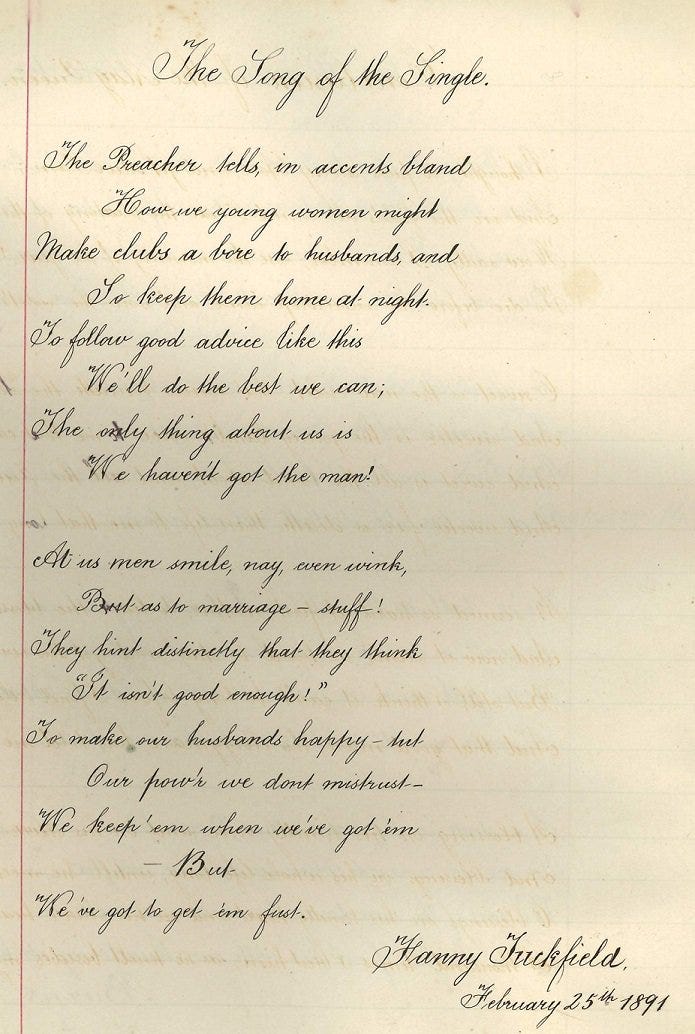 The Song of the Single.
The Preacher tells, in accents bland
How we young women might
Make clubs a bore to husbands, and
So keep them home at night.
To follow good advice like this
We'll do the best we can;
The only thing about us is
We haven't got the man!
At us men smile, nay, even wink,
But as to marriage – stuff!
They hint distinctly that they think
"It isn't good enough!"
To make our husbands happy – tut
Our pow'r we dont mistrust –
We keep 'em when we've got 'em
– But
We've got to get 'em fust.
Fanny Tuckfield.
February 25th 1891